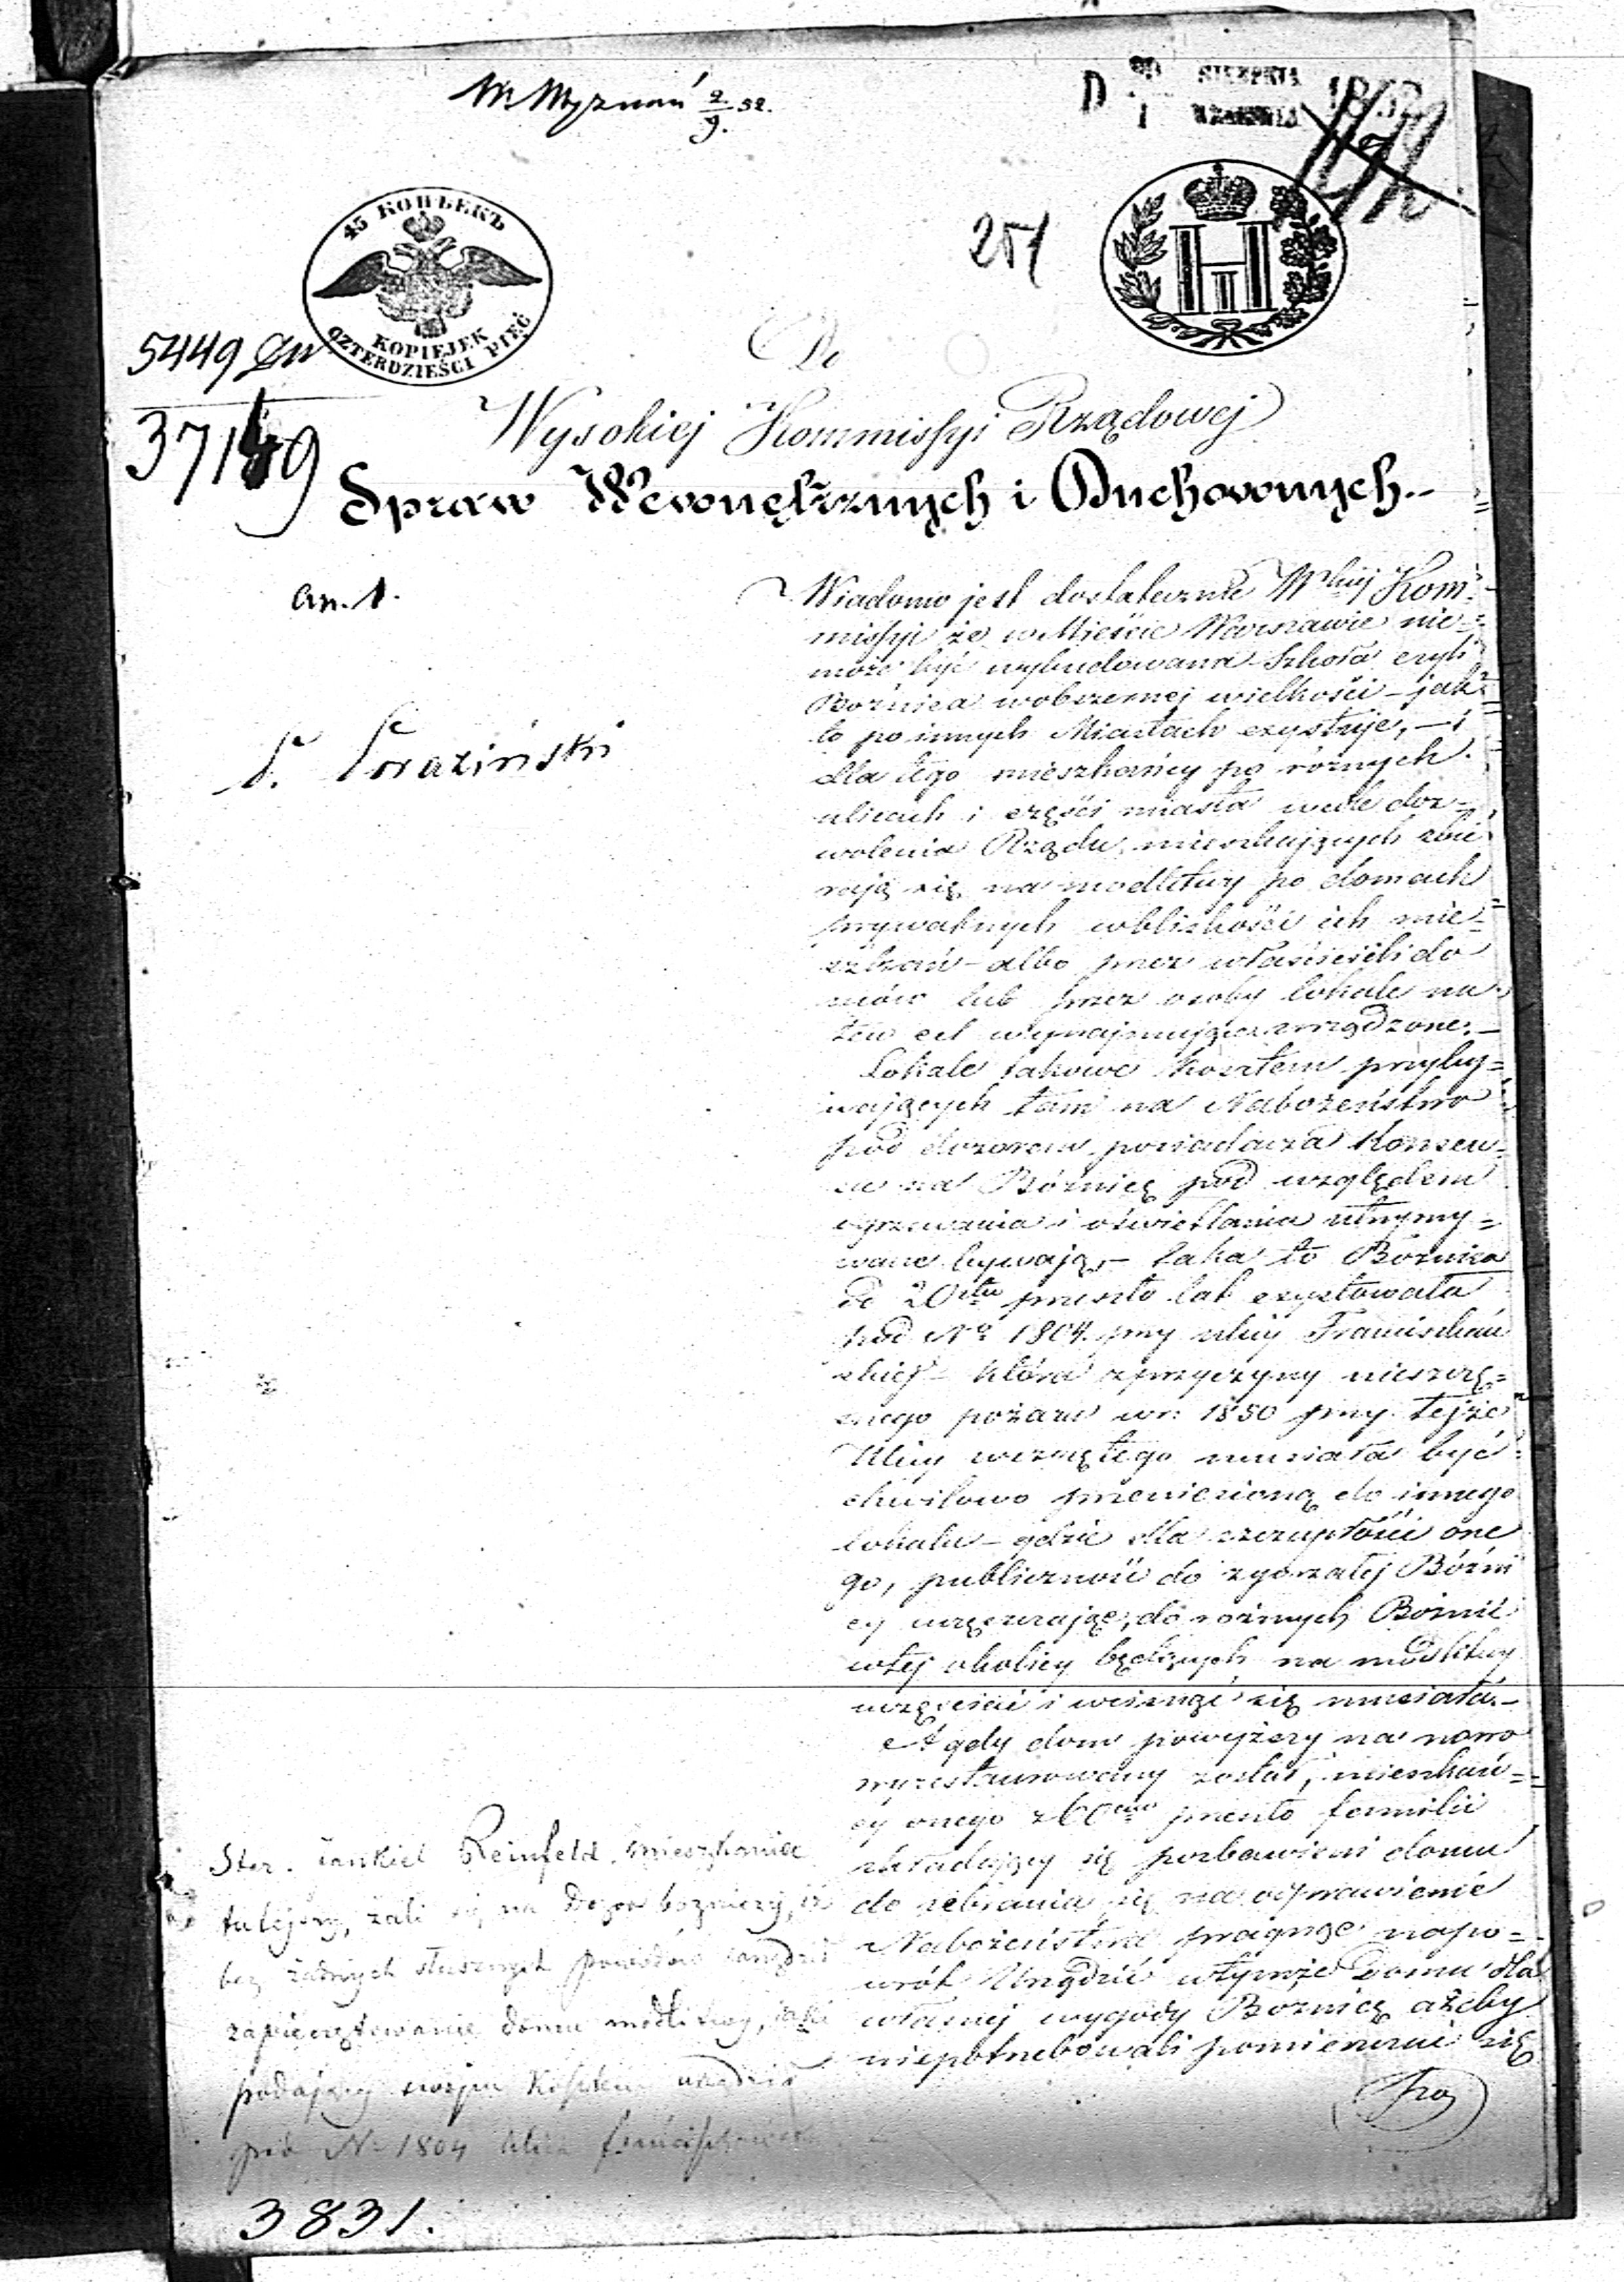 W. Wyznań 2/9. 52.
D 20/1 SIERPNIA/WRZEŚNIA 1852
45 КОПѢЕКЪ
KOPIEJEK
CZTERDZIEŚCI PIĘĆ
251
H
5449
37149
Do
Wysokiej Kommissyi Rządowej
Spraw Wewnętrznych i Duchownych.
an. 1.
Wiadomo jest dostatecznie Wkiej Kom=
missyi że w Mieście Warszawie nie=
może być wybudowana Szkoła czyli
Bożnica w obszernej wielkości – jak
to po innych Miastach exystuje, – i
dla tego mieszkańcy po różnych
ulicach i części miasta wedle doz=
wolenia Rządu, mieszkających zbie
rają się na modlitwy po domach
prywatnych w bliskości ich mie=
szkań – albo przez właścicieli do
mów lub przez osoby lokale na
ten cel wynajmujące urządzone. –
Lokale takowe kosztem przyby=
wających tam na Nabożeństwo
pod dozorem posiadacza Konsen=
su na Bóżnicę pod względem
ogrzewania i oświetlania utrzymy=
wane bywają, – taka to Bóżnica
do 20stu przeszło lat exystowała
pod No 1804. przy ulicy Franciszkań
skiej – która z przyczyny nieszczę=
snego pożaru w r. 1850 przy tejże
Ulicy wszczętego musiała być
chwilowo przeniesioną do innego
lokalu – gdzie dla szczupłości one
go, publiczność do zgorzałej Bóżni
cy uczęszczając, do różnych Bożnic
w tej okolicy będących na modlitwy
uczęszczać i wcisnąć się musiała. –
A gdy dom powyższy na nowo
wyrestaurowany został, mieszkań=
cy onego z 60ciu przeszło familii
składający się pozbawieni domu
do zebrania się na odprawienie
Nabożeństwa pragnąc napo=
wrót Urządzić w tymże Domu dla
własnej wygody Bożnicę ażeby
niepotrzebowali pomieszczać się
S. Poraziński
Ster. Jankiel Reinfeld mieszkaniec
tutejszy, żali się na Dozor boźniczy, iż
bez żadnych słusznych powodów zarządził
zapieczętowanie domu modlitwy, jaki
podający swojem kosztem urządził
pod No 1804 ulica Franciszkańska
3831.